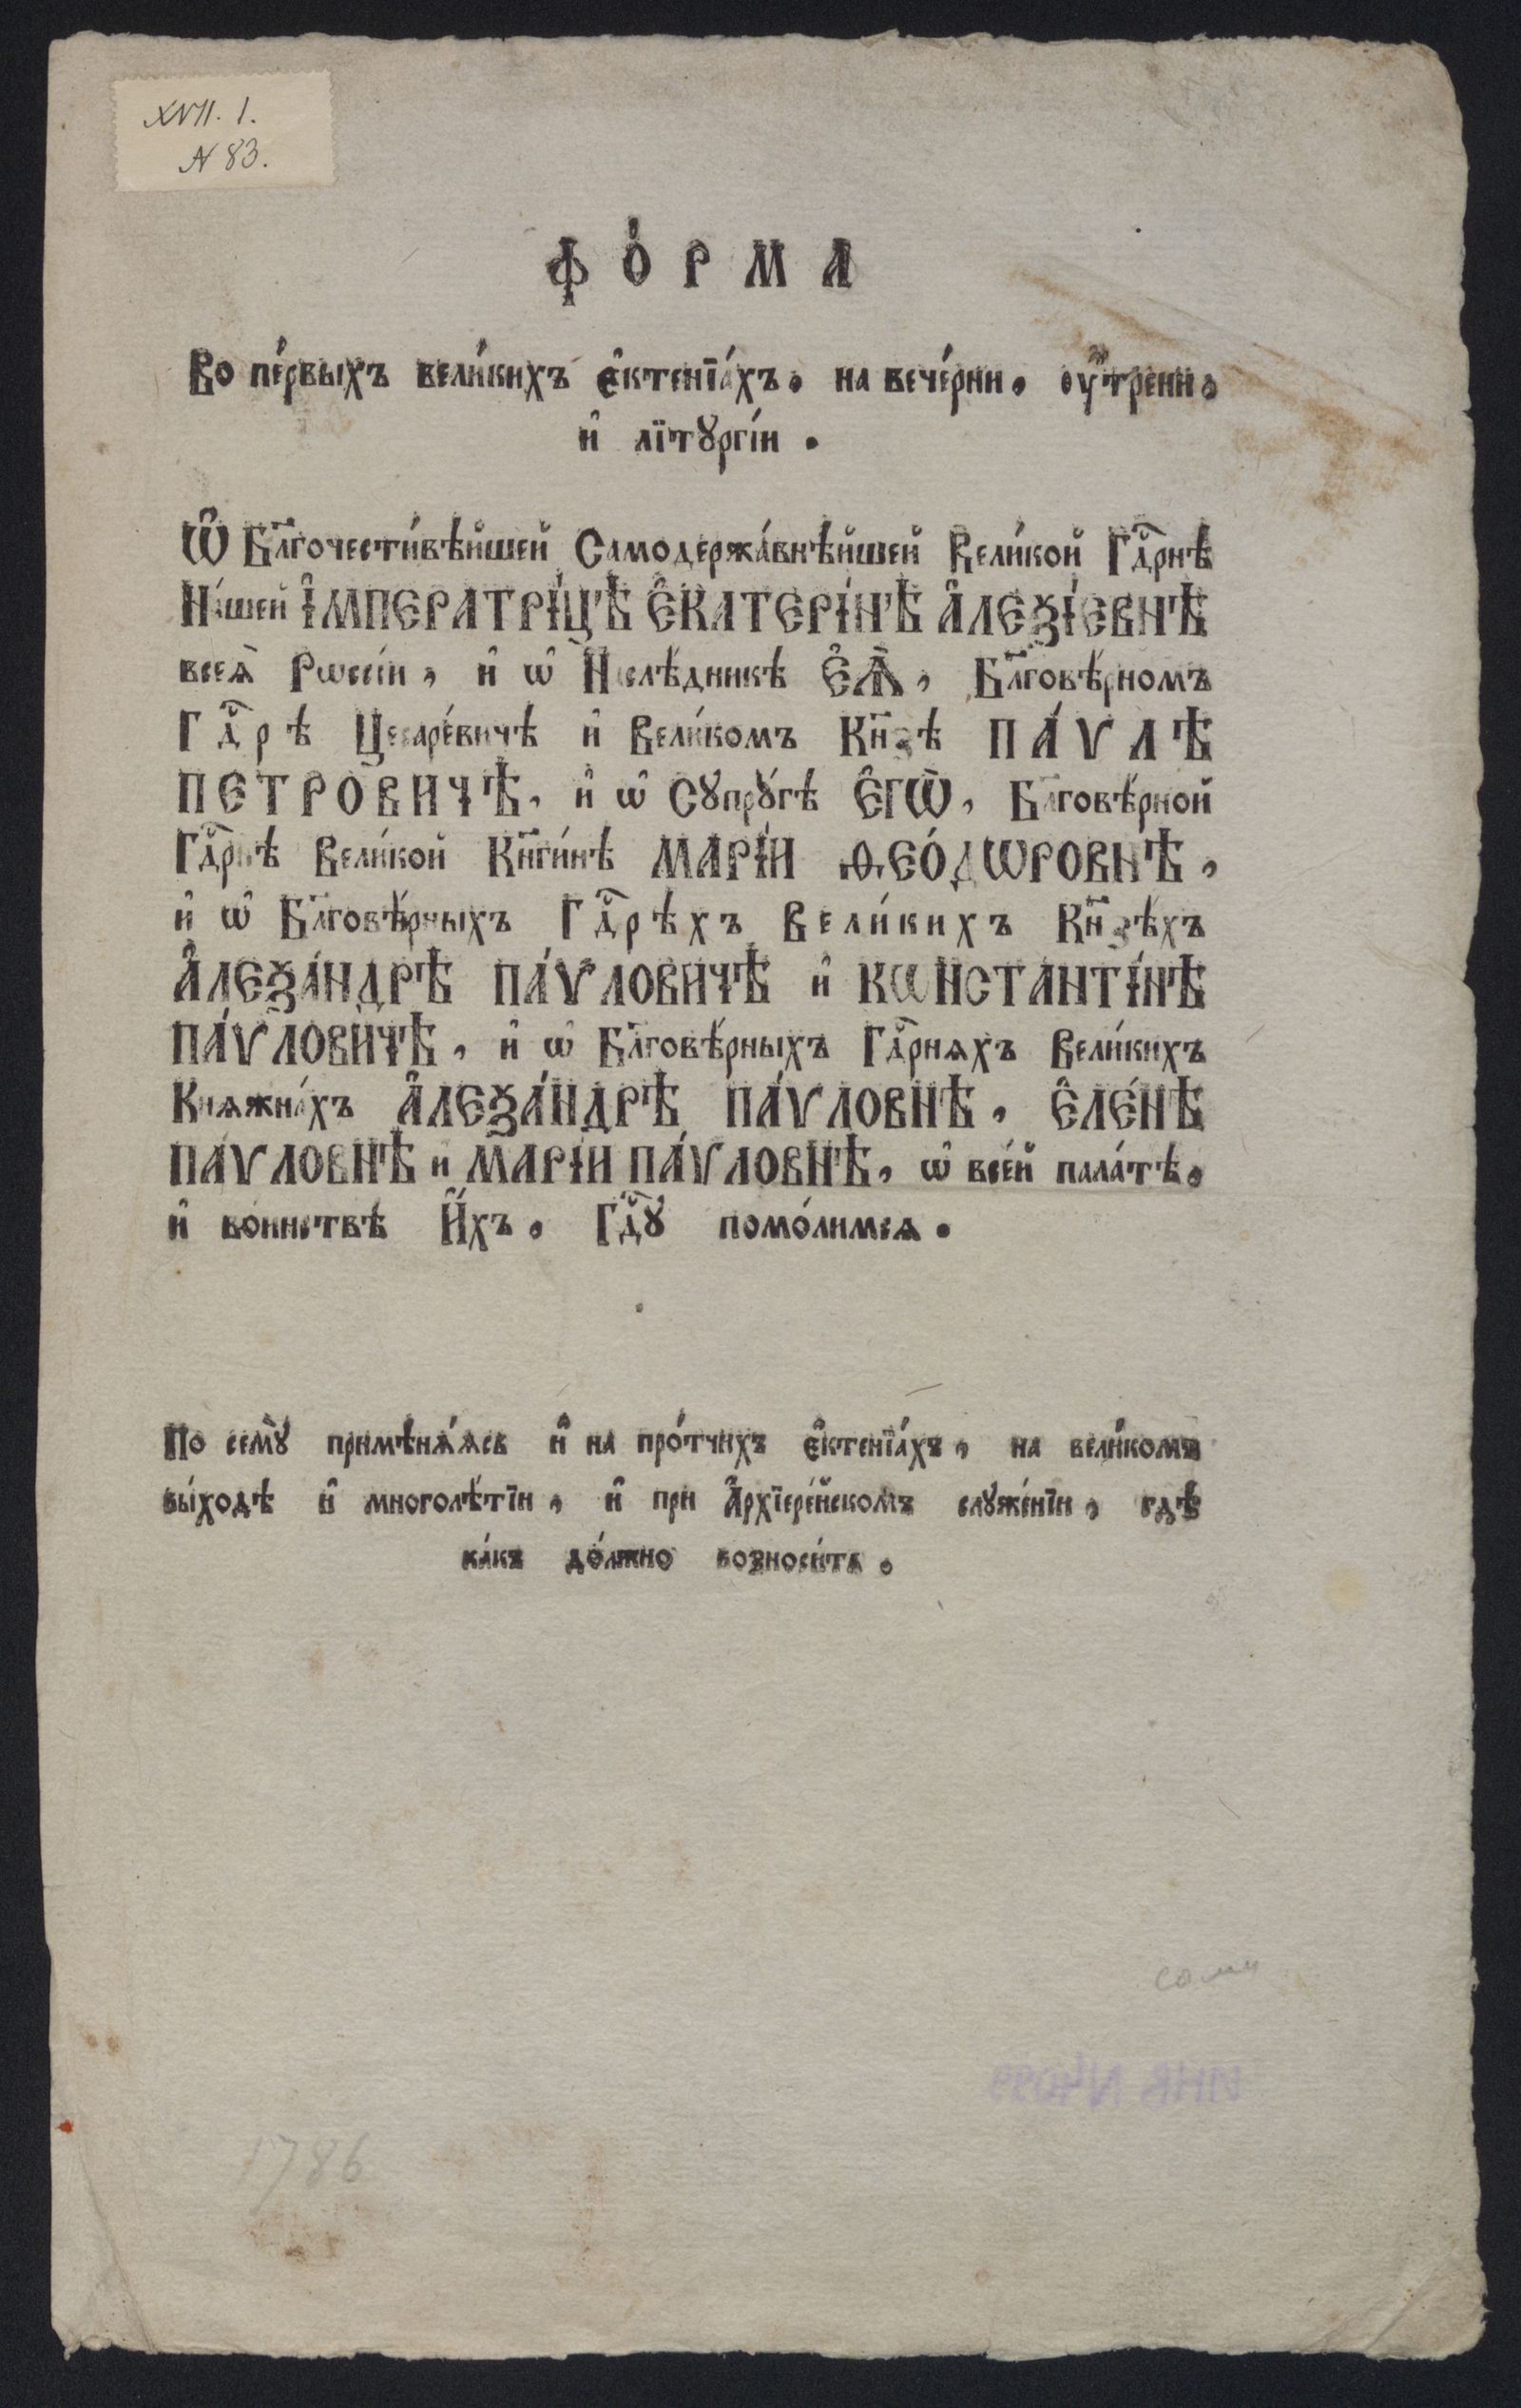 XVII. 1.
N 83.
ФО́РМА
Во пе́рвыхъ вели́кихъ є҆ктенїа́хъ. на вече́рни. ᲂу҆́трени.
и҆ лїтꙋргі́и.
Ѽ Бл҃гочести́вѣйшей Самодержа́внѣйшей Вели́кой Гдⷭ҇рнѣ
На́шей І҆МПЕРАТРІ́ЦѢ Є҆КАТЕРІ́НѢ А҆ЛЕѮІ́ЕВНѢ
всеѧ̀ Рѡссі́и, и҆ ѡ҆ Наслѣ́дникѣ Є҆Ѧ̀, Бл҃говѣ́рномъ
Гдⷭ҇рѣ Цесаре́вичѣ и҆ Вели́комъ Кн҃зѣ ПА́ѴЛѢ
ПЕТРО́ВИЧѢ, и҆ ѡ҆ Сꙋпрꙋ́гѣ Є҆ГѠ̀, Бл҃говѣ́рной
Гдⷭ҇рнѣ Вели́кой Кн҃ги́нѣ МАРІ́И ѲЕО́ДѠРОВНѢ,
и҆ ѡ҆ Бл҃говѣ́рныхъ Гдⷭ҇рѣхъ Вели́кихъ Кн҃зѣхъ
А҆ЛЕѮА́НДРѢ ПА́ѴЛОВИЧѢ и҆ КѠНСТАНТІ́НѢ
ПА́ѴЛОВИЧѢ, и҆ ѡ҆ Бл҃говѣ́рныхъ Гдⷭ҇рнѧхъ Вели́кихъ
Кнѧжна́хъ А҆ЛЕѮА́НДРѢ ПА́ѴЛОВНѢ, Є҆ЛЕ́НѢ
ПА́ѴЛОВНѢ и҆ МАРІ́И ПА́ѴЛОВНѢ, ѡ҆ все́й пала́тѣ.
и҆ во́инствѣ И҆́хъ. Гдⷭ҇ꙋ помо́лимсѧ.
По семꙋ̀ примѣнѧ́ѧсь и҆ на про́тчихъ є҆ктенїа́хъ, на вели́комъ
вы́ходѣ и҆ многолѣ́тїи, и҆ при А҆рхїере́йскомъ слꙋже́нїи, гдѣ
ка́къ до́лжно возноси́ть.
ИНВ N4099
1786